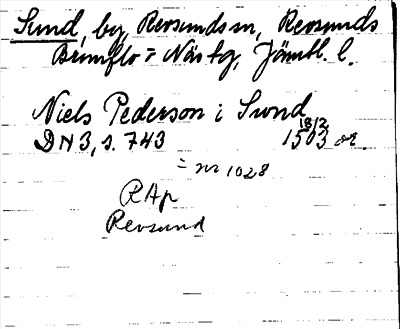 Sund, by, Revsunds sn, Revsunds
Brunflo o Näs tg, Jämtl. l.
Niels Pederson i Sund
18/2
DN 3, s. 743 1503 or.
= nr 1028
RAp
Revsund